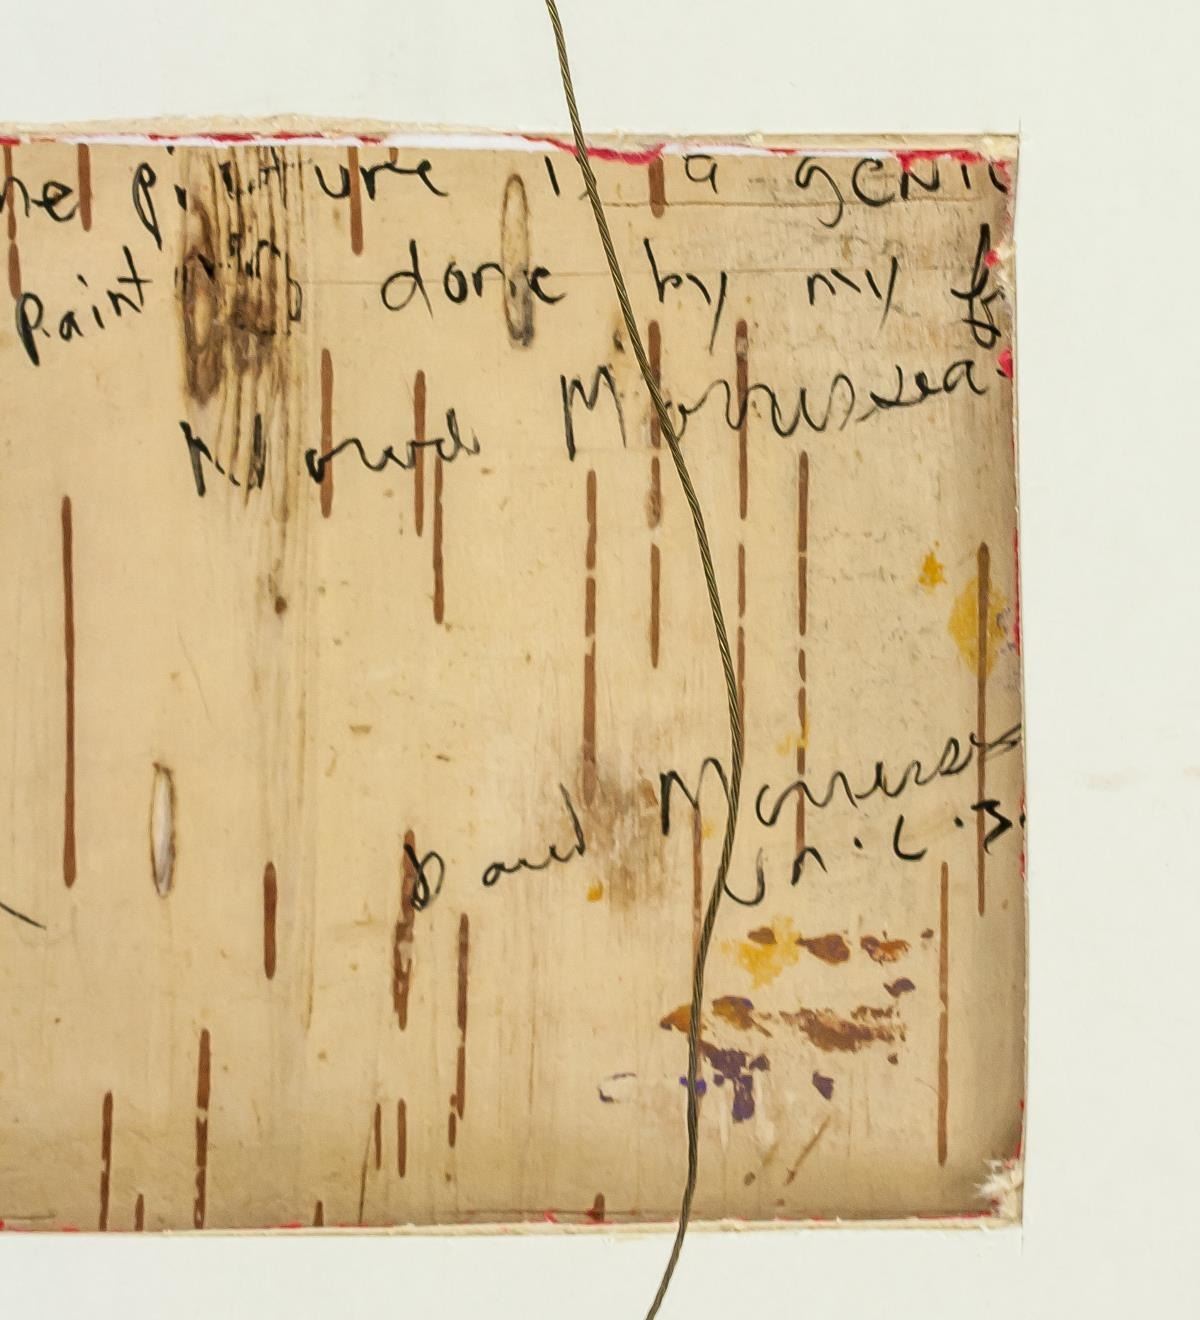 he picture is a genu
painting done by my f
Norval Morrisseau
David Morriss